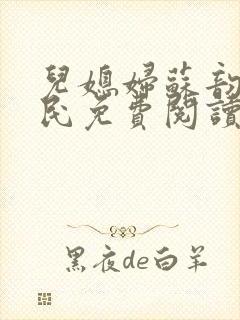 兒媳婦蘇韵
民免費閱讀
黑夜de白羊